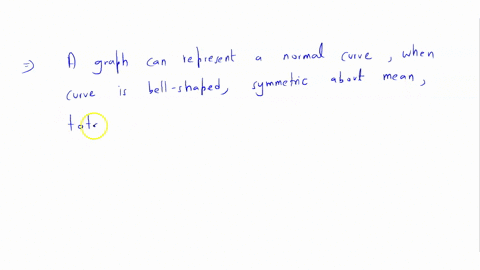 ⇒ A graph can represent a normal curve, when
curve is bell-shaped, symmetric about mean,